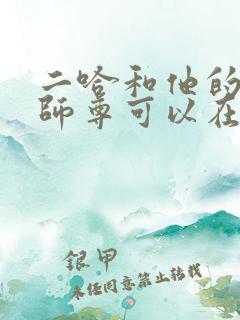 二哈和他的
師尊可以在
銀甲
未任同意禁止转载